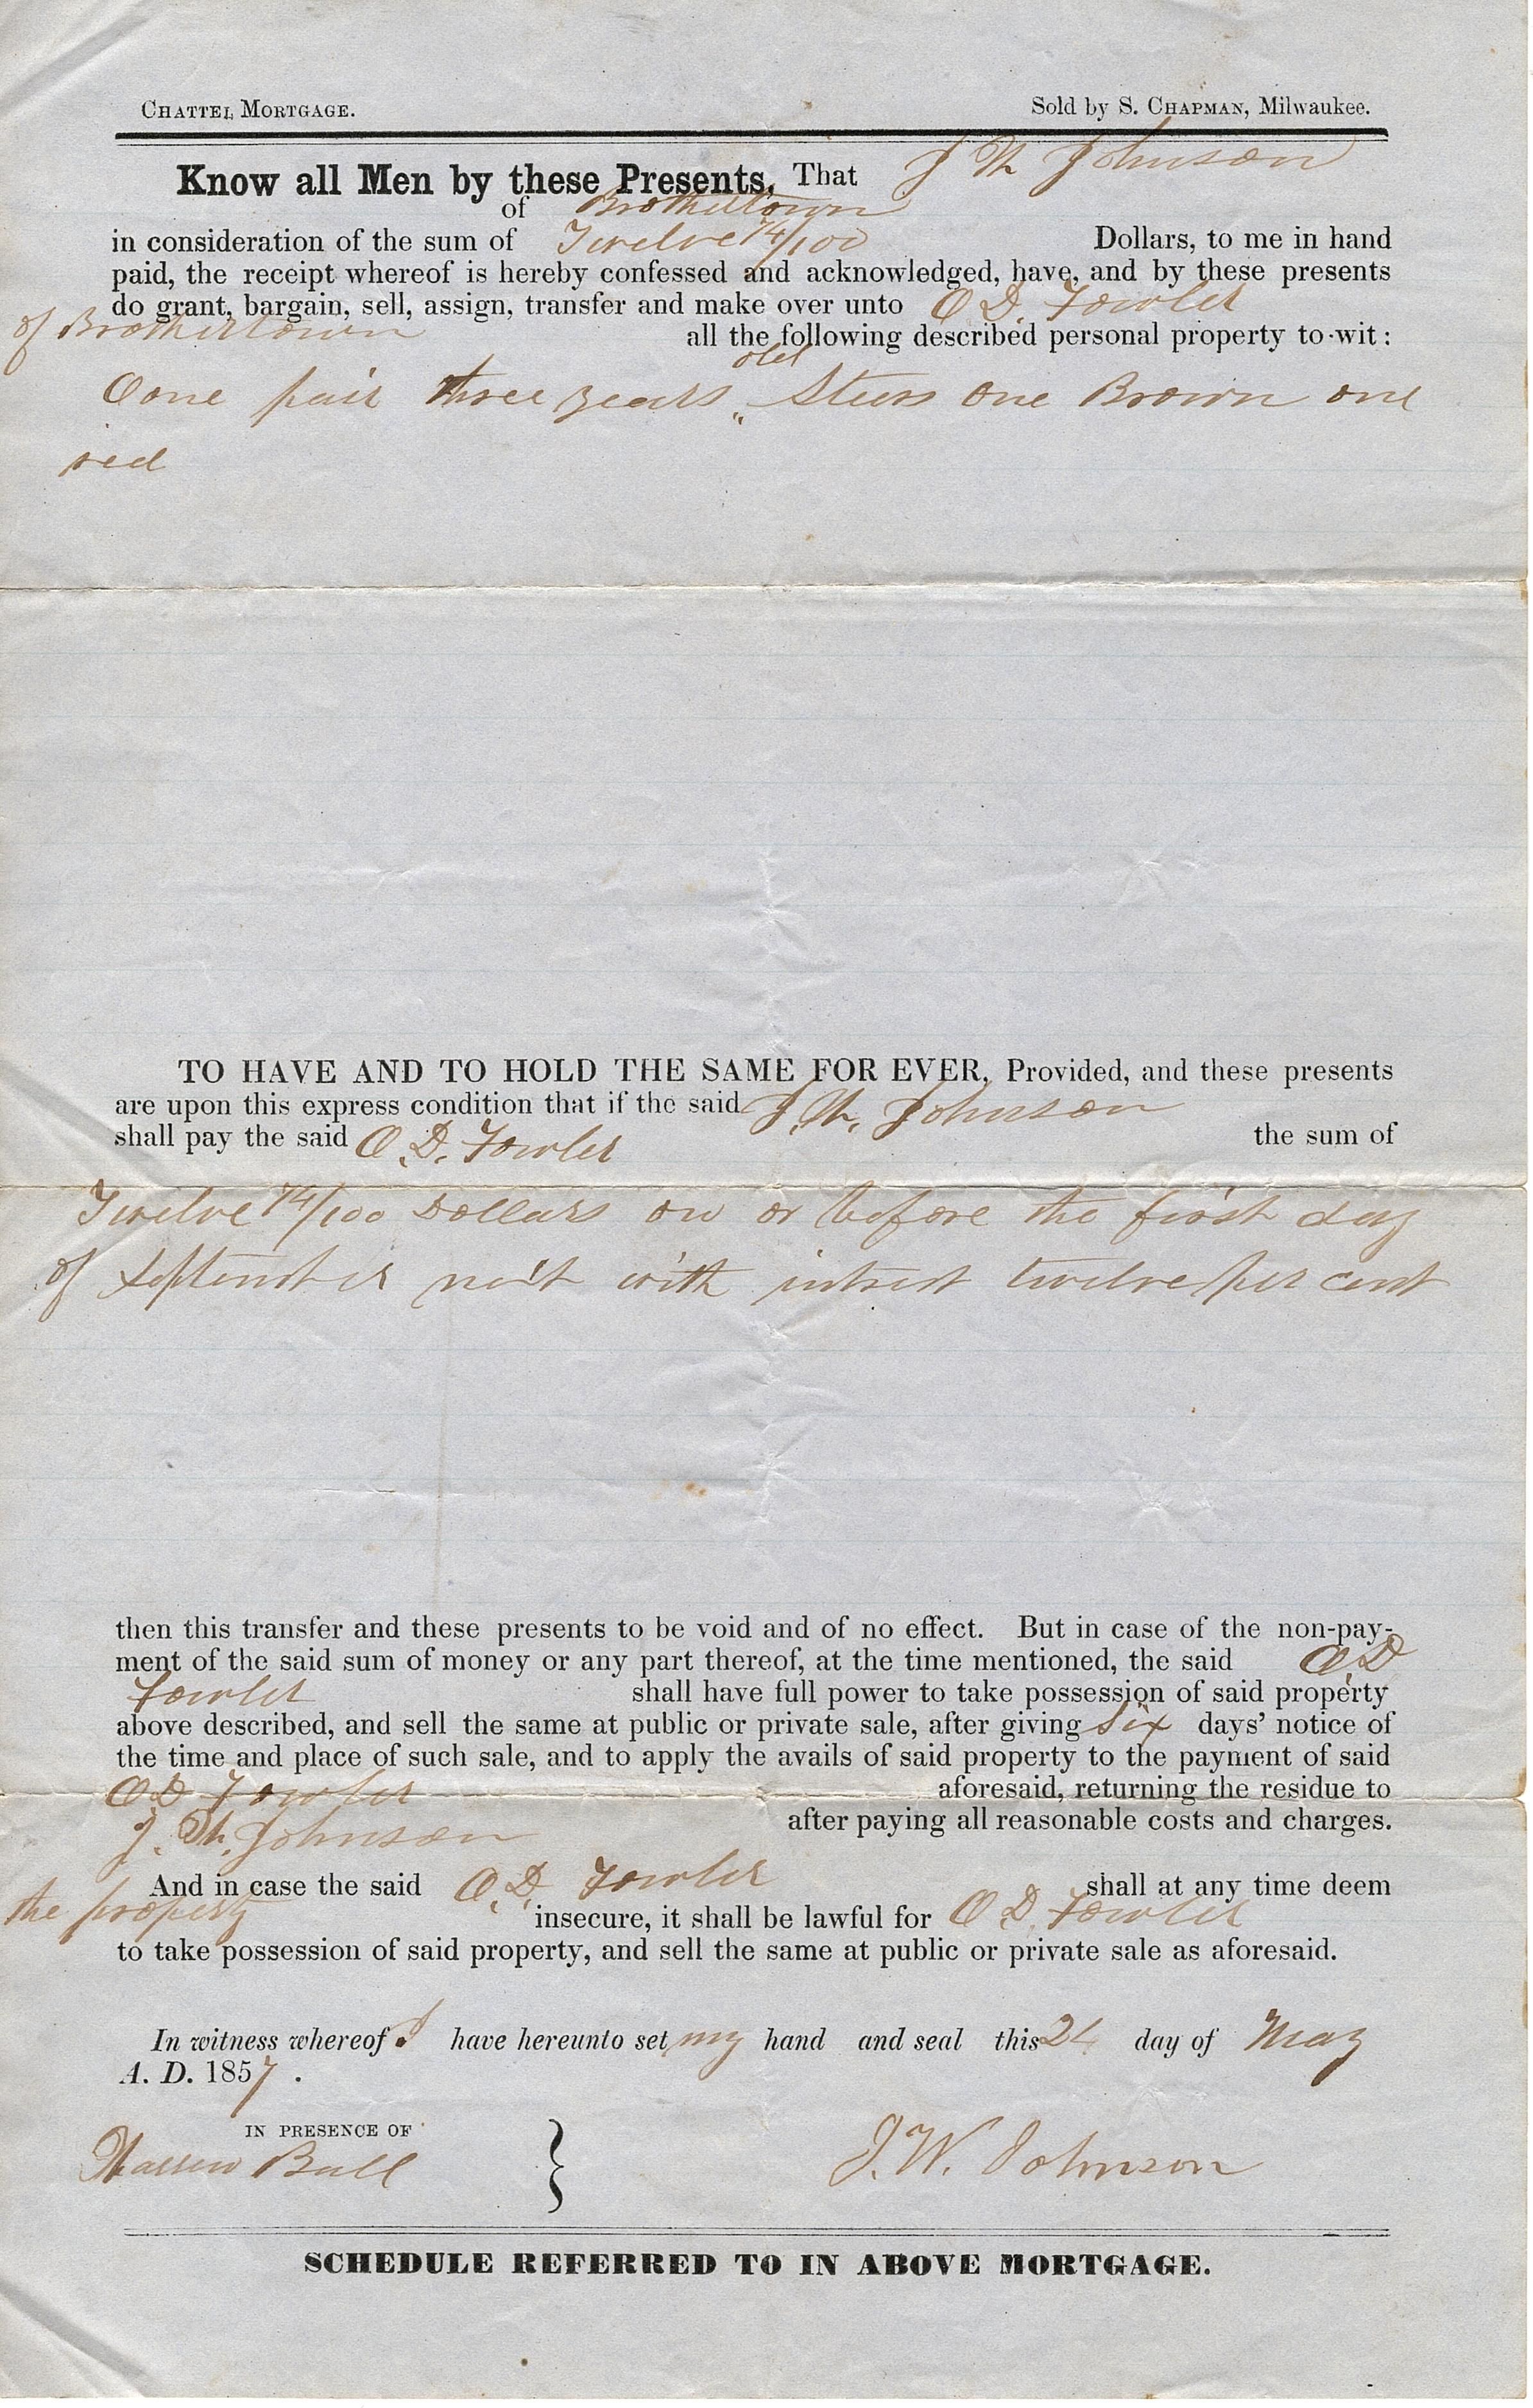 CHATTEL MORTGAGE. Sold by S. CHAPMAN, Milwaukee.
Know all Men by these Presents, That J W Johnson
of Brothertown
in consideration of the sum of Twelve 74/100 Dollars, to me in hand
paid, the receipt whereof is hereby confessed and acknowledged, have, and by these presents
do grant, bargain, sell, assign, transfer and make over unto O D. Fowler
of Brothertown all the following described personal property to-wit:
old
Oone pair three years „ Steers one Brown one
red
TO HAVE AND TO HOLD THE SAME FOR EVER, Provided, and these presents
are upon this express condition that if the said J. W. Johnson
shall pay the said O. D. Fowler the sum of
Twelve 74/100 Dollars on or before the first day
of September next with intrest twelve per cent
then this transfer and these presents to be void and of no effect. But in case of the non-pay-
ment of the said sum of money or any part thereof, at the time mentioned, the said O. D
Fowler shall have full power to take possession of said property
above described, and sell the same at public or private sale, after giving six days' notice of
the time and place of such sale, and to apply the avails of said property to the payment of said
O D Fowler aforesaid, returning the residue to
J. W. Johnson after paying all reasonable costs and charges.
And in case the said O. D. Fowler shall at any time deem
the property insecure, it shall be lawful for O D. Fowler
to take possession of said property, and sell the same at public or private sale as aforesaid.
In witness whereof I have hereunto set my hand and seal this 24 day of May
A. D. 1857.
IN PRESENCE OF
Ball J. W. Johnson
SCHEDULE REFERRED TO IN ABOVE MORTGAGE.